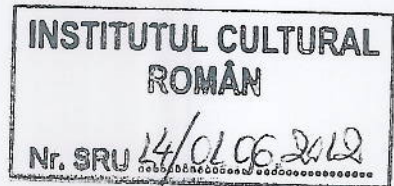 INSTITUTUL CULTURAL
ROMÂN
Nr. SRU 44/01.06.2012